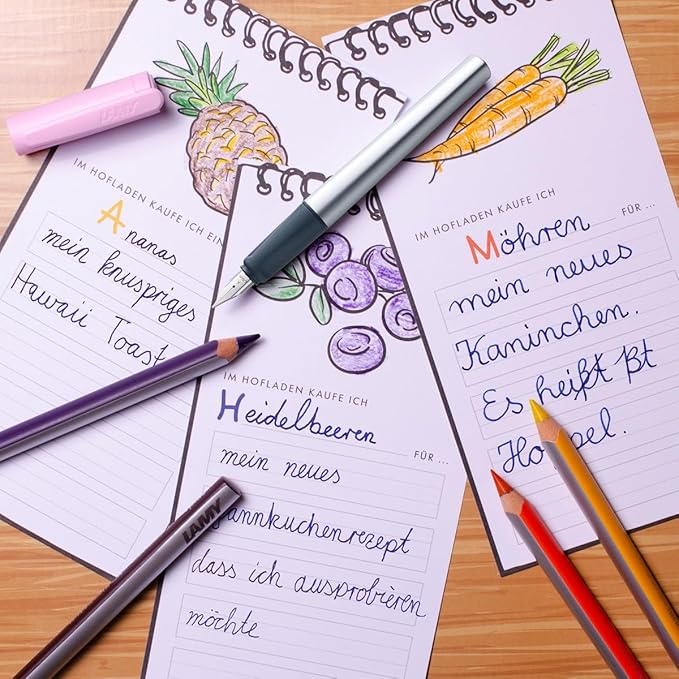 LAMY
IM HOFLADEN KAUFE ICH EIN
Ananas
mein knuspriges
Hawaii Toast
IM HOFLADEN KAUFE ICH
Heidelbeeren FÜR ...
mein neues
annkuchenrezept
dass ich ausprobieren
möchte
IM HOFLADEN KAUFE ICH
Möhren FÜR ...
mein neues
Kaninchen.
Es heißt ßt
LAMY